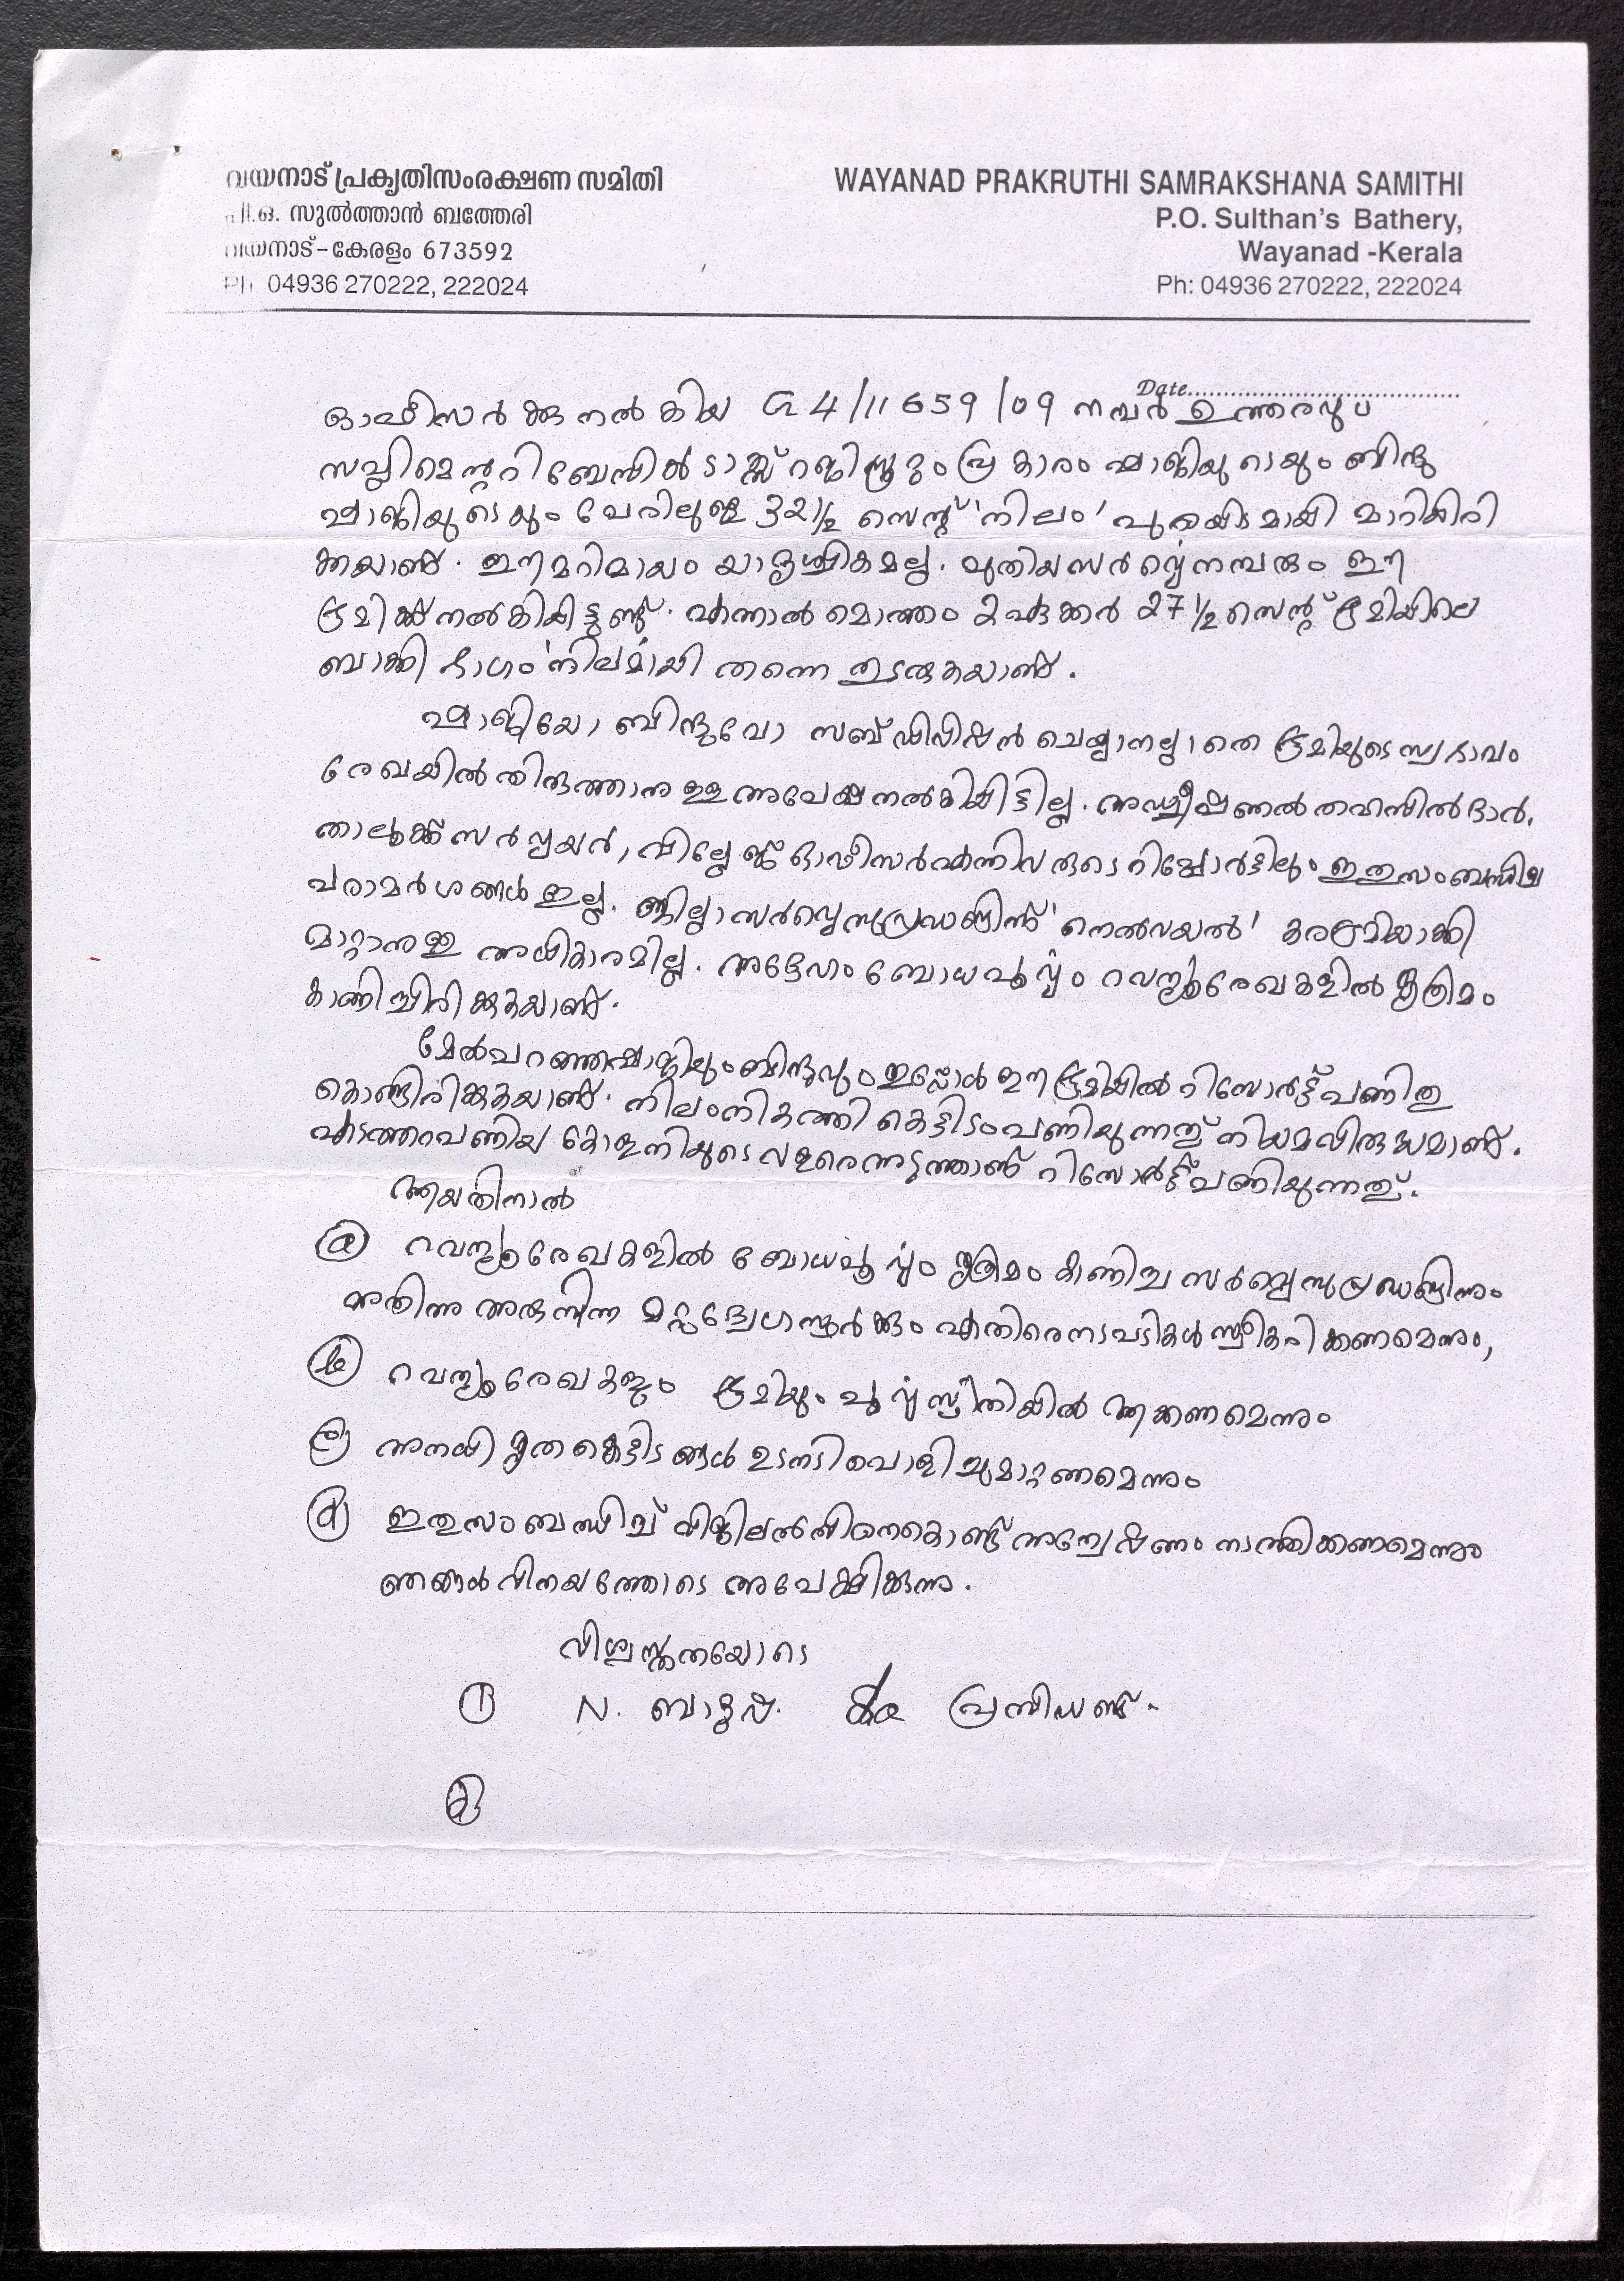 വയനാട് പ്രകൃതിസംരക്ഷണ സമിതി
പി.ഒ. സുൽത്താൻ ബത്തേരി
വയനാട്-കേരളം 673592
Ph 04936 270222, 222024
WAYANAD PRAKRUTHI SAMRAKSHANA SAMITHI
P.O. Sulthan's Bathery,
Wayanad -Kerala
Ph: 04936 270222, 222024
Date
ഓഫീസർക്കു നൽകിയ G4/11659/09 നമ്പർ ഉത്തരവും
സപ്ലിമെന്ററി ബേസിൽ ടാക്സ് റജിസ്റ്ററും പ്രകാരം ഷാജിയുടെയും ബിന്ദു
ഷാജിയുടെയും പേരിലുള്ള 32½ സെന്റ് 'നിലം' പുരയിടമായി മാറിയിരി
ക്കയാണ്. ഈ മറിമായം യാദൃശ്ചികമല്ല. പുതിയ സർവ്വെ നമ്പരും ഈ
ഭൂമിക്ക് നൽകിയിട്ടുണ്ട്. എന്നാൽ മൊത്തം 2 ഏക്കർ 27½ സെന്റ് ഭൂമിയിലെ
ബാക്കി ഭാഗം 'നില'മായി തന്നെ തുടരുകയാണ്.
ഷാജിയോ ബിന്ദുവോ സബ്ഡിവിഷൻ ചെയ്യാനല്ലാതെ ഭൂമിയുടെ സ്വഭാവം
രേഖയിൽ തിരുത്താനുള്ള അപേക്ഷ നൽകിയിട്ടില്ല. അഡീഷണൽ തഹസിൽദാർ,
താലൂക്ക് സർവ്വെയർ, വില്ലേജ് ഓഫീസർ എന്നിവരുടെ റിപ്പോർട്ടിലും ഇതുസംബന്ധിച്ച
പരാമർശങ്ങൾ ഇല്ല. ജില്ലാ സർവ്വെ സൂപ്രണ്ടിന് 'നെൽവയൽ' കരഭൂമിയാക്കി
മാറ്റാനുള്ള അധികാരമില്ല. അദ്ദേഹം ബോധപൂർവ്വം റവന്യൂരേഖകളിൽ കൃത്രിമം
കാണിച്ചിരിക്കുകയാണ്.
മേൽപറഞ്ഞ ഷാജിയും ബിന്ദുവും ഇപ്പോൾ ഈ ഭൂമിയിൽ റിസോർട്ട് പണിതു
കൊണ്ടിരിക്കുകയാണ്. നിലം നികത്തി കെട്ടിടം പണിയുന്നത് നിയമവിരുദ്ധമാണ്.
കോളനിയുടെ വളരെ അടുത്താണ് റിസോർട്ട് പണിയുന്നത്.
ആയതിനാൽ
(a) റവന്യൂരേഖകളിൽ ബോധപൂർവ്വം കൃത്രിമം കാണിച്ച സർവ്വെ സൂപ്രണ്ടിനും
അതിന്നു മറ്റുദ്യോഗസ്ഥർക്കും എതിരെ നടപടികൾ സ്വീകരിക്കണമെന്നും,
(b) റവന്യൂരേഖകളും ഭൂമിയും പൂർവ്വസ്ഥിതിയിൽ ആക്കണമെന്നും
(c) അനധികൃത കെട്ടിടങ്ങൾ ഉടനടി പൊളിച്ചുമാറ്റണമെന്നും
(d) ഇതുസംബന്ധിച്ച് വിജിലൻസിനെകൊണ്ട് അന്വേഷണം നടത്തിക്കണമെന്നും
ഞങ്ങൾ വിനയത്തോടെ അപേക്ഷിക്കുന്നു.
വിശ്വസ്തതയോടെ
(1) N. ബാദുഷ. പ്രസിഡണ്ട്.
(2)